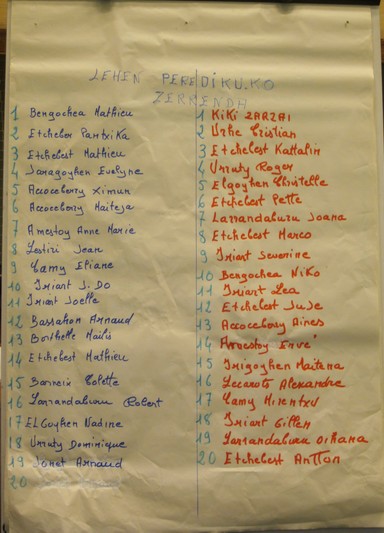 LEHEN PEREDIKU.KO
ZERRENDA
1 Bengochea Mathieu
2 Etcheber Pantxika
3 Etchebest Mathieu
4 Jaragoyhen Evelyne
5 Accoceberry Ximun
6 Accoceberry Maiteja
7 Amestoy Anne Marie
8 Lestiri Jean
9 Camy Eliane
10 Iriart J. Do
11 Iriart Joelle
12 Bassahon Arnaud
13 Borthelle Mailis
14 Etchebest Mathieu
15 Barreix Colette
16 Larrandaburu Robert
17 ELGoyhen Nadine
18 Urruty Dominique
19 Jonat Arnaud
20
1 KiKi ZARZAI
2 Urhe Cristian
3 Etchebest Kattalin
4 Urruty Roger
5 Elgoyhen Christelle
6 Etchebest Pette
7 Larrandaburu Joana
8 Etchebest Marco
9 Iriart Severine
10 Bengochea Niko
11 Iriart Lea
12 Etchebest JuJe
13 Accocebery Aines
14 Amestoy Enve
15 Irigoyhen Maitena
16 Lecarote Alexandre
17 Camy Hirentxu
18 Iriart Gillen
19 Larrandaburu Oihana
20 Etchebest Antton